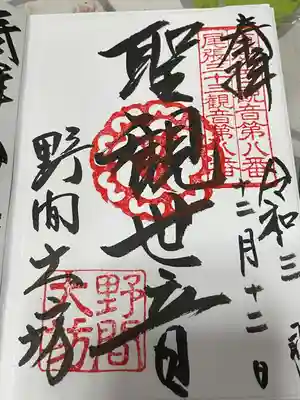 奉拝
令和三
十二月十二日
尾張三十三観音第八番
聖観世音
野間大坊
野間
大坊